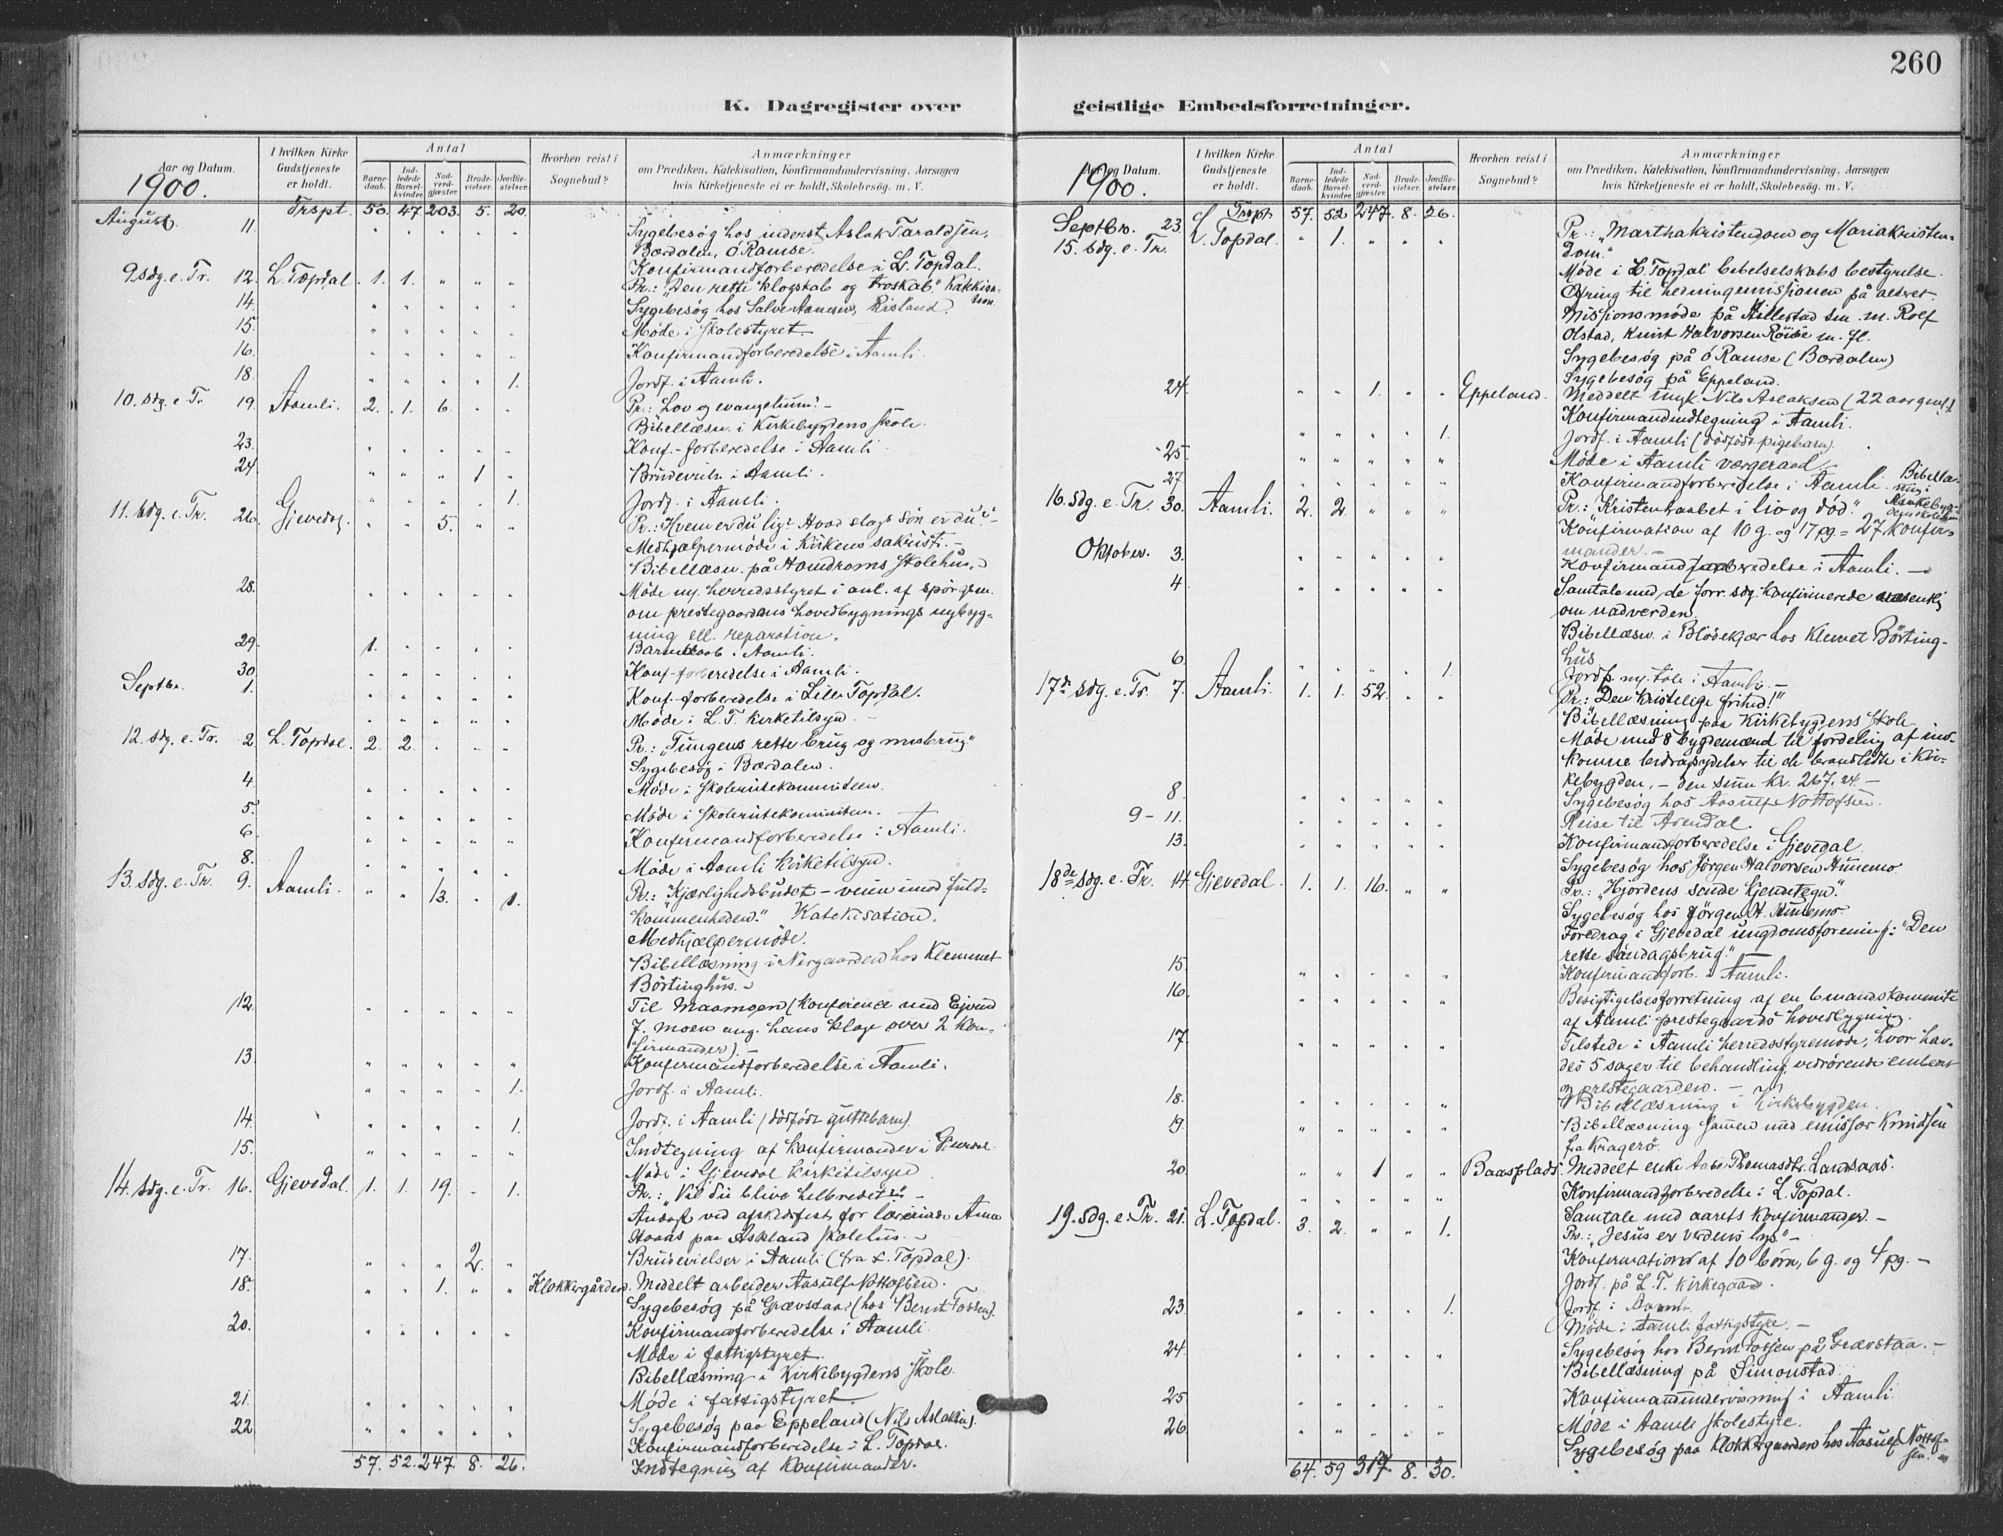 260
K. Dagregister over geistlige Embedsforretninger.
Aar og Datum. 1900.
I hvilken Kirke Gudstjeneste er holdt.
Antal
Barnedaab. Indledede Barselkvinder. Nadverdgjæster. Brudevielser. Jordfæstelser.
Hvorhen reist i Sognebud?
Anmærkninger
om Prædiken, Katekisation, Konfirmandundervisning, Aarsagen
hvis Kirketjeneste ei er holdt, Skolebesøg. m. V.
Trspt. 50. 47. 203. 5. 20.
August 11. Sygebesøg hos inderst Aslak Taraldsen,
Bærdalen, ó Ramse.
Konfirmandforberedelse i L. Topdal.
9 sdg. e. Tr. 12. L. Topdal. 1. 1. " " " Pr.: "Den rette klogskab og troskab." Katekisation.
14. Sygebesøg hos Salve Aanesen, Risland.
15. Møde i skolestyret.
16. Konfirmandforberedelse i Aamli.
18. " " " " 1. Jordf. i Aamli.
10. sdg. e. Tr. 19. Aamli. 2. 1. 6. " " Pr.: "Lov og evangelium." –
Bibellæsn. i Kirkebygdens skole.
23. Konf.-forberedelse i Aamli
24. " " " 1 " Brudevielse i Aamli.
" " " " 1. Jordf. i Aamli.
11. sdg. e. Tr. 26. Gjevedal. " " 5. " " Pr.: Hvem er du lig? Hvad slags søn er du? –
Medhjælpermøde i Kirkens sakristi. –
Bibellæsn. på Homdroms skolehus.
28. Møde m. herredsstyret i anl. af spørgsm.
om prestegaardens hovedbygnings nybyg-
ning ell. reparation.
29. 1. " " " " Barnedaab i Aamli.
30. Konf.-forberedelse i Aamli.
Septbr. 1. Konf.-forberedelse i Lille Topdal.
Møde i L. T. kirketilsyn. –
12. sdg. e. Tr. 2. L. Topdal. 2. 2. " " " Pr.: "Tungens rette brug og misbrug."
Sygebesøg i Bærdalen.
4. Møde i skolerutekommiteen.
5. Møde i skolerutekomiteen.
6. Konfirmandforberedelse i Aamli.
8. Møde i Aamli kirketilsyn.
13. sdg. e. Tr. 9. Aamli. " " 13. " 1. Pr.: "Kjærlighedsbudet – veien imod fuld-
kommenheden." Katekisation.
Medhjælpermøde.
Bibellæsning i Nergaarden hos Klemmet
Börtinghus. –
12. Til (konference med Ejvind
J. Moen ang. hans klage over 2 kon-
firmander). –
13. Konfirmandforberedelse i Aamli.
" " " " 1. Jordf. i Aamli.
14. " " " " 1. Jordf. i Aamli (dødfødt guttebarn).
15. Indtegning af konfirmander i Gjevedal.
Møde i Gjevedal kirketilsyn
14. sdg. e. Tr. 16. Gjevedal. 1. 1. 19. " 1. Pr.: "Vil du blive helbredet?" –
ved afskedsfest for lærerinde Anna
paa Askland skolehus. –
17. " " " 2. " Brudevielser i Aamli (fra L. Topdal).
18. " " 1. " " Klokkergården. Meddelt arbeider Aasulf Nottofsen.
Sygebesøg på Grævstaa (hos Bernt Tossen).
20. Konfirmandforberedelse i Aamli.
Møde i fattigstyret.
Bibellæsning i Kirkebygdens skole.
21. Møde i fattigstyret.
22. Sygebesøg paa Eppeland (Nils Aslaksen).
Konfirmandforberedelse i L. Topdal.
Indtegning af konfirmander.
57. 52. 247. 8. 26.
Aar og Datum. 1900.
I hvilken Kirke Gudstjeneste er holdt.
Antal
Barnedaab. Indledede Barselkvinder. Nadverdgjæster. Brudevielser. Jordfæstelser.
Hvorhen reist i Sognebud?
Anmærkninger
om Prædiken, Katekisation, Konfirmandundervisning, Aarsagen
hvis Kirketjeneste et er holdt, Skolebesøg. m. V.
Trspt. 57. 52 247. 8. 26.
Septbr. 23. 15. sdg. e. Tr. L. Topdal. " 1. " " " Pr.: "Marthakristendom og Mariakristen-
dom."
Møde i L. Topdal bibelselskabs bestyrelse.
Ofring til hedningemissionen på alteret.
Missionsmøde på Hillestad sm. m. Rolf
Olstad, Knut Halvorsen m. fl.
Sygebesøg på ó Ramse (Bærdalen)
Sygebesøg på Eppeland.
24. " " 1. " " Eppeland. Meddelt ungk. Nils Aslaksen (22 aar gml.)
Konfirmandindtegning i Aamli.
" " " " 1. Jordf. i Aamli (dødfødt pigebarn).
25. Møde i Aamli værgeraad
27. Konfirmandforberedelse i Aamli. Bibellæsning i Kirkebygdens skolehus
16. sdg. e. Tr. 30. Aamli. 2. 2. " " " Pr.: "Kristenhaabet i liv og død."
Konfirmation af 10 g. og 17 pg = 27 konfir-
mander. –
Oktober. 3. Konfirmandforberedelse i Aamli. –
4. Samtale med de forr. sdg. konfirmerede
om nadverden
Bibellæsn. i Blødekjær hos Klemet Börting-
hus
6. " " " " 1. Jordf. m. tale i Aamli. –
17de sdg. e. Tr. 7. Aamli. 1. 1. 52. " " Pr.: "Den kristelige frihed!"
Bibellæsning paa Kirkebygdens skole
Møde med 8 bygdemænd til fordeling af ind-
komne bidragsydelser til de brandlidte i Kir-
kebygden, – den sum kr. 267,24 –
8. Sygebesøg hos Aasulf Nottofsen.
9 – 11. Reise til Arendal.
13. Konfirmandforberedelse i Gjevedal.
Sygebesøg hos Jörgen Halvorsen Hunemo.
18de sdg. e. Tr. 14. Gjevedal. 1. 1. 16. " " Pr.: "Hjordens sande kjendetegn."
Sygebesøg hos Jörgen H. Hunemo.
Foredrag i Gjevedal ungdomsforening: "Den
rette søndagsbrug." –
15. Konfirmandforb. i Aamli.
16. Besigtigelsesforretning af en 6 mandskommite
af Aamli prestegaards hovedbygning.
17. Tilstede i Aamli herredsstyremøde, hvor hav-
des 5 sager til behandling, vedrørende embedet
og prestegaarden. –
18. Bibellæsning i Kirkebygden.
19. Bibellæsning sammen med emissær Knudsen
fra Kragerø
20. " " 1 " " Baasplads. Meddelt enke Thomasdtr. Landsaas.
Konfirmandforberedelse i L. Topdal.
Samtale med aarets konfirmander. –
19. sdg. e. Tr. 21. L. Topdal. 3. 2. " " 1. Pr.: "Jesus er verdens lys" –
Konfirmation af 10 børn, 6 g. og 4 pg. –
Jordf. på L. T. kirkegaard.
23. " " " " 1. Jordf. i Aamli.
Møde i Aamli fattigstyre. –
24. Sygebesøg hos Bernt Tossen på Grævstaa. –
Bibellæsning på Simonstad.
25 Konfirmandundervisning i Aamli
26. Møde i Aamli skolestyre.
Sygebesøg paa Klokkergaarden hos Aasulf Nottof-
sen. –
64. 59 317. 8. 30.